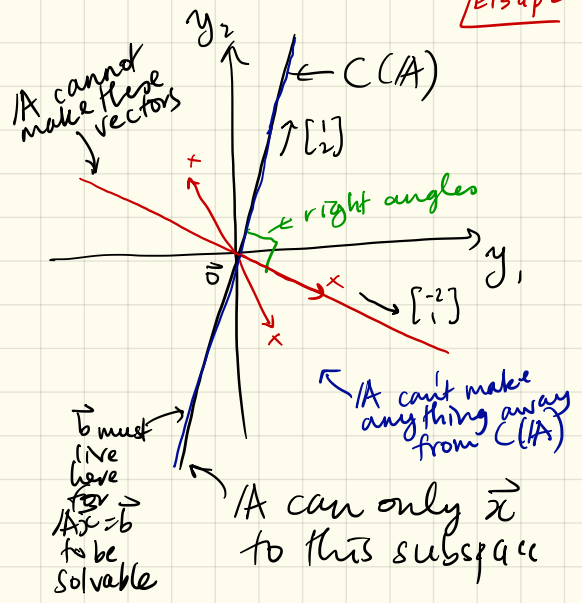 y₂
C(A)
A cannot
make these
vectors
[1
2]
x
right angles
y₁
0⃗
x
[-2
1]
x
A can't make
anything away
from C(A)
b⃗ must
live
here
for
Ax⃗=b⃗
to be
solvable
A can only x⃗
to this subspace